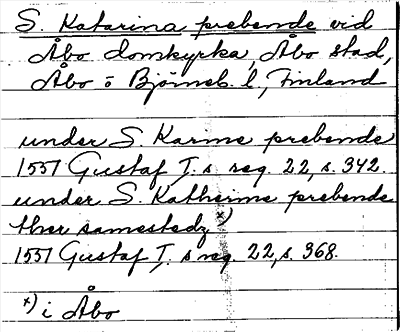 S. Katarina prebende vid
Åbo domkyrka, Åbo stad,
Åbo o Björneb. l, Finland
under S. Karine prebende
1551 Gustaf I. s reg. 22, s. 342.
under S. Katherine prebende
ther samestedz x)
1551 Gustaf I. s reg. 22, s. 368.
x) i Åbo